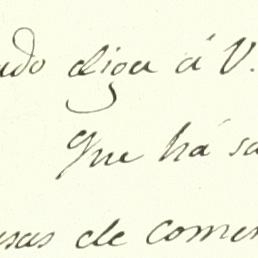 ado diga á V.
Que há sa
usas de comer